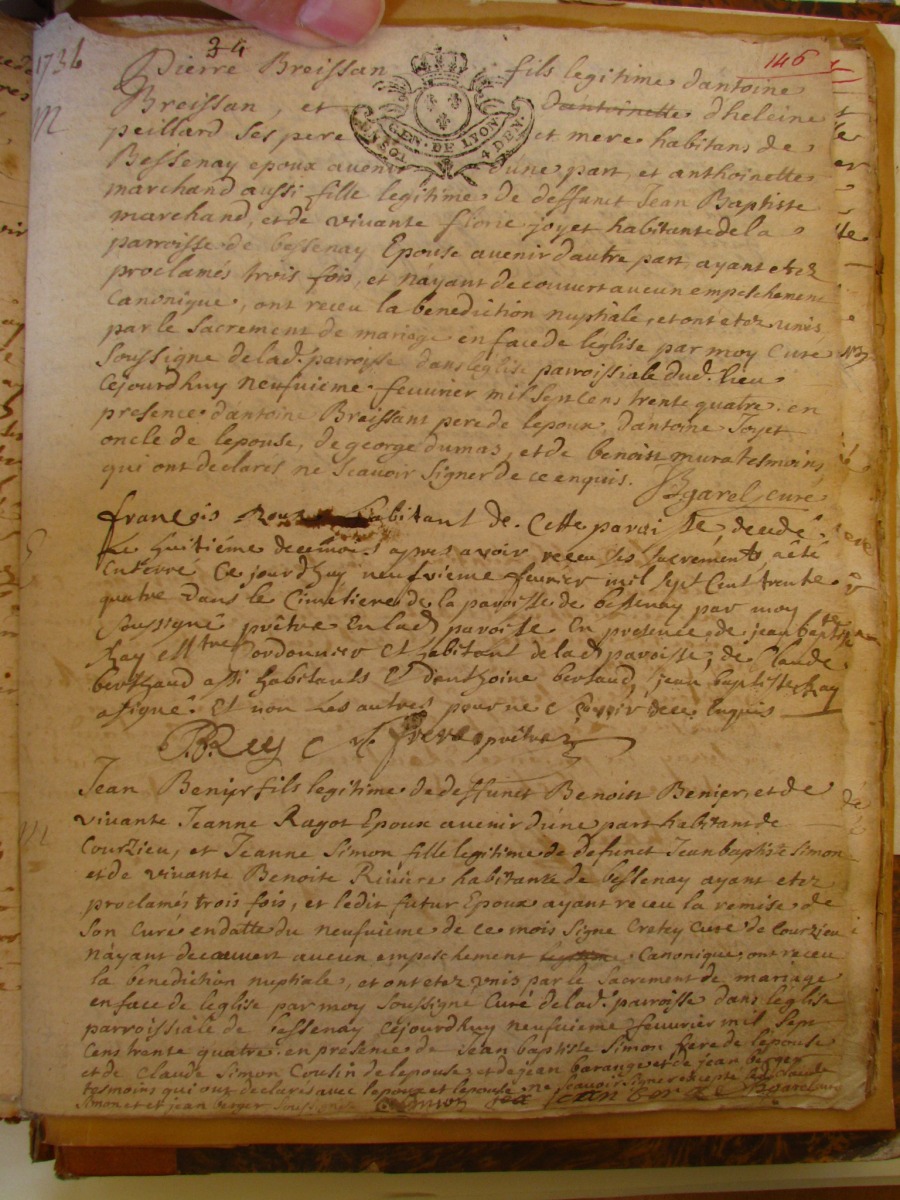 1734
34
146
GEN. DE LYON
4 DEN.
Pierre Breissan fils legitime dantoine
Breissan, et dantoinette dheleine
peillard ses pere et mere habitans de
Bessenay epoux avenir dune part, et anthoinette
marchand aussi fille legitime de deffunct Jean Baptiste
marchand, et de vivante florie joyet habitante de la
parroisse de bessenay Epouse avenir dautre part ayant etez
proclamés trois fois, et nayant decouvert aucun empeschement
Canonique, ont receu la benediction nuptiale, et ont etez unis
par le Sacrement de mariage en face de leglise par moy Curé
Soussigne de lad. parroisse dans leglise parroissiale dud. lieu
cejourdhuy neufuieme feuvrier mil sept cens trente quatre. en
presence dantoine Breissant pere de lepoux dantoine Joyet
oncle de lepouse, de george dumas, et de benoist murat tesmoins
qui ont declarés ne scavoir signer de ce enquis.
Bgarel curé
françois habitant de Cette paroisse, decedé
Le huitiéme apres avoir receu Ses Sacrements, a été
Enterré Ce jourdhuy neufvieme fevrier mil sept Cent trente
quatre dans le Cimetiere de la paroisse de bessenay par moy
Soussigné prêtre En lad paroisse En presence de jean baptiste
Ray Mtre Cordonnier Et habitant de lad paroisse, de Claude
berthaud assi habitants Et danthoine bertaud, jean baptiste Ray
a signé Et non Les autres pour ne Scavoir de ce Enquis
prêtre
Jean Benier fils legitime de deffunct Benoist Benier, et de
vivante Jeanne Ragot Epoux avenir dune part habitant de
Courzieu, et Jeanne Simon fille legitime de defunct Jean baptiste Simon
et de vivante Benoite Riviere habitante de bessenay ayant etez
proclamés trois fois, et ledit futur Epoux ayant receu la remise de
son Curé en datte du neufuieme de ce mois Signe Cretey Curé de Courzieu
nayant decouvert aucun empeschement Canonique, ont receu
la benediction nuptiale, et ont etez unis par le Sacrement de mariage
en face de leglise par moy Soussigne Curé de lad. parroisse dans leglise
parroissiale de bessenay cejourdhuy neufuieme feuvrier mil Sept
Cens trente quatre. en presence de Jean baptiste Simon frere de lepouse
et de Claude Simon Cousin de lepouse, et de jean barange, et de jean berger
tesmoins qui ont declarés avec lepoux et lepouse ne scavoir signer excepté led. claude
Simon et et jean berger Soussignez